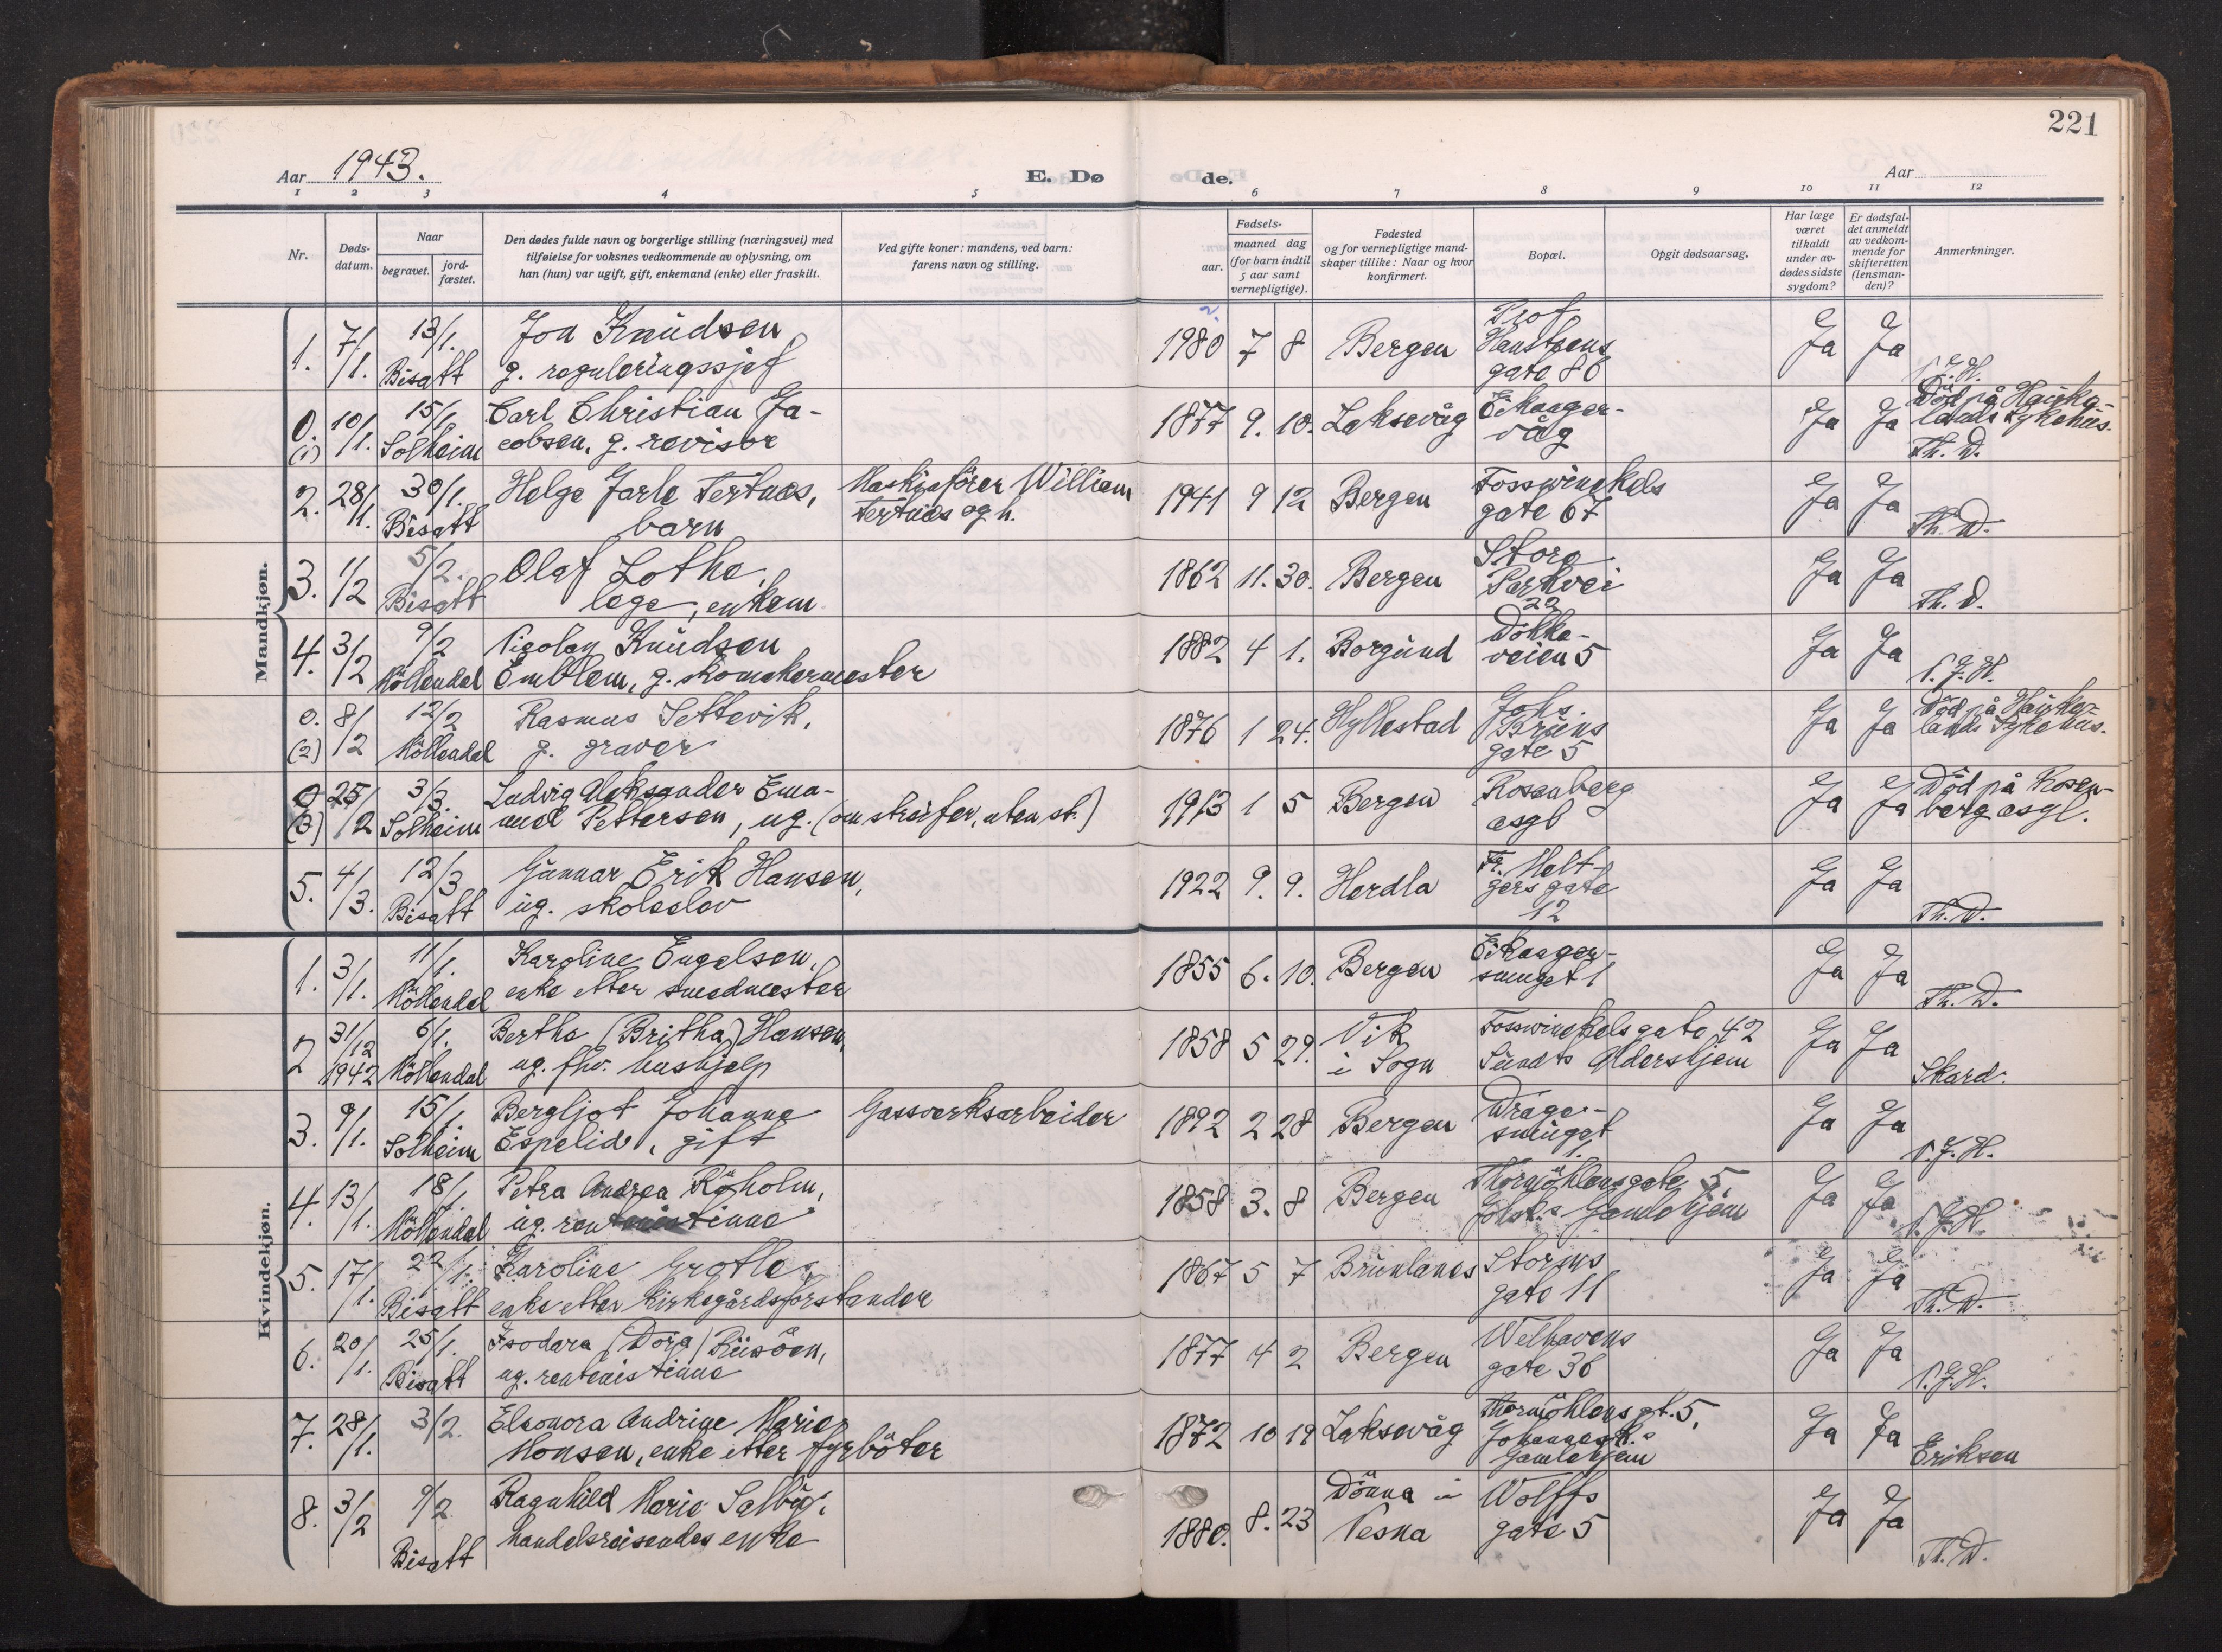 221
Aar 1943.
E. Dø
de.
Aar
1 2 3 4 5 6 7 8 9 10 11 12
Nr.
Døds-
datum.
Naar
begravet.
jord-
fæstet.
Den dødes fulde navn og borgerlige stilling (næringsvei) med
tilføielse for voksnes vedkommende av oplysning, om
han (hun) var ugift, gift, enkemand (enke) eller fraskilt.
Ved gifte koner: mandens, ved barn:
farens navn og stilling.
Fødsels-
aar.
maaned dag
(for barn indtil
5 aar samt
vernepligtige).
Fødested
og for vernepligtige mand-
skaper tillike: Naar og hvor
konfirmert.
Bopæl.
Opgit dødsaarsag.
Har læge
været
tilkaldt
under av-
dødes sidste
sygdom?
Er dødsfal-
det anmeldt
av vedkom-
mende for
skifteretten
(lensman-
den)?
Anmerkninger.
Mandkjøn.
1. 7/1. 13/1. Jon Knudsen 1980 7 8 Bergen Prof Hansteens gate 86 Ja Ja
Bisatt g. reguleringssjef
0. (1) 10/1. 15/1. Carl Christian Ja- 1877 9. 10. Laksevåg Eikanger- våg Ja Ja Död på Hauke- lands Sykehus.
Solheim cobsen, g. revisor Th. D.
2. 28/1. 30/1. Helge Jarle Tertnæs, Maskinförer William 1941 9 12 Bergen Fosswinckels gate 67 Ja Ja
Bisatt barn Tertnæs og h. Th. D.
3. 1/2 5/2. Olaf Lothe, 1862 11. 30. Bergen Store Parkvei 22 Ja Ja
Bisatt lege, enkem. Th. D.
4. 3/2 9/2 Nicolay Knudsen 1882 4 1. Borgund Dokke- veien 5 Ja Ja
Möllendal Emblem, g. skomakermester
0. (2) 8/2 12/2 Rasmus Settevik, 1876 1 24. Hyllestad Johs. Bruns gate 5 Ja Ja Död på Hauke- lands Sykehus.
Möllendal g. graver
0 (3) 25/2 3/3. Ludvig Aleksander Ema- 1913 1 5 Bergen Rosenberg asyl Ja Ja Död på Rosen- berg asyl.
Solheim nuel Pettersen, ug. (omstreifer, uten st.)
5. 4/3. 12/3 Gunnar Erik Hansen, 1922 9. 9. Herdla Fr. Melt- zers gate 12 Ja Ja
Bisatt ug. skoleelev Th. D.
Kvindekjøn.
1. 3/1. 11/1. Karoline Engelsen, 1855 6. 10. Bergen Eikanger- smuget 1 Ja Ja
Möllendal enke etter smedmester Th. D.
2 31/12 1942 6/1. Bertha (Britha) Hansen, 1858 5 29. Vik i Sogn Fosswinckelsgate 42 Sundts Aldershjem Ja Ja
Möllendal ug. fhv. hushjelp Skard.
3. 9/1. 15/1. Bergljot Johanne Gassverksarbeider 1892 2 28 Bergen Drage- smuget 1. Ja Ja
Solheim Espelid, gift
4. 13/1. 18/1. Petra Andrea Röholm, 1858 3. 8 Bergen Thormöhlensgate 5, Gamlehjem Ja Ja
Möllendal ug. rentenistinne
5. 17/1. 22/1. Karoline Grotle, 1867 5 7 Brunlanes Storms gate 11 Ja Ja
Bisatt enke etter kirkegårdsforstander Th. D.
6. 20/1. 25/1. Isodora (Dora) Riisöen, 1877 4 2 Bergen Welhavens gate 36 Ja Ja
Bisatt ug. rentenistinne
7. 28/1. 3/2. Eleonora Andrine Marie 1872 10 19 Laksevåg Thormöhlens gt. 5, Johannesk.s Gamlehjem Ja Ja
Monsen, enke etter fyrböter Eriksen
8. 3/2 9/2 Ragnhild Marie 1880. 8. 23 Dönna i Nesna Wolffs gate 5 Ja Ja
Bisatt handelsreisendes enke Th. D.